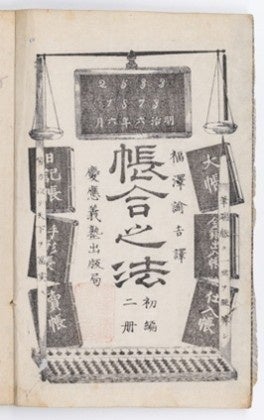 2533
1873
明治六年六月
福澤諭吉譯
帳合之法
初編
二冊
慶應義塾出版局
大帳
仕入帳
日記帳
賣帳